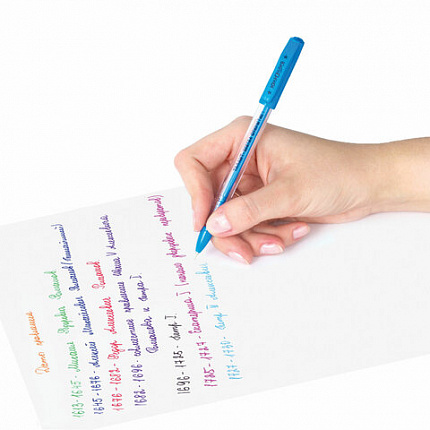 Даты правления
1613-1645 - Михаил Федорович Романов
1645-1676 - Алексей Михайлович Романов (Тишайший)
1676-1682 - Федор Алексеевич Романов
1682-1696 - совместное правление Ивана V Алексеевича
и Петра I
1696-1725 - Петр I
1725-1727 - Екатерина I
1727-1730 - Петр II Алексеевич